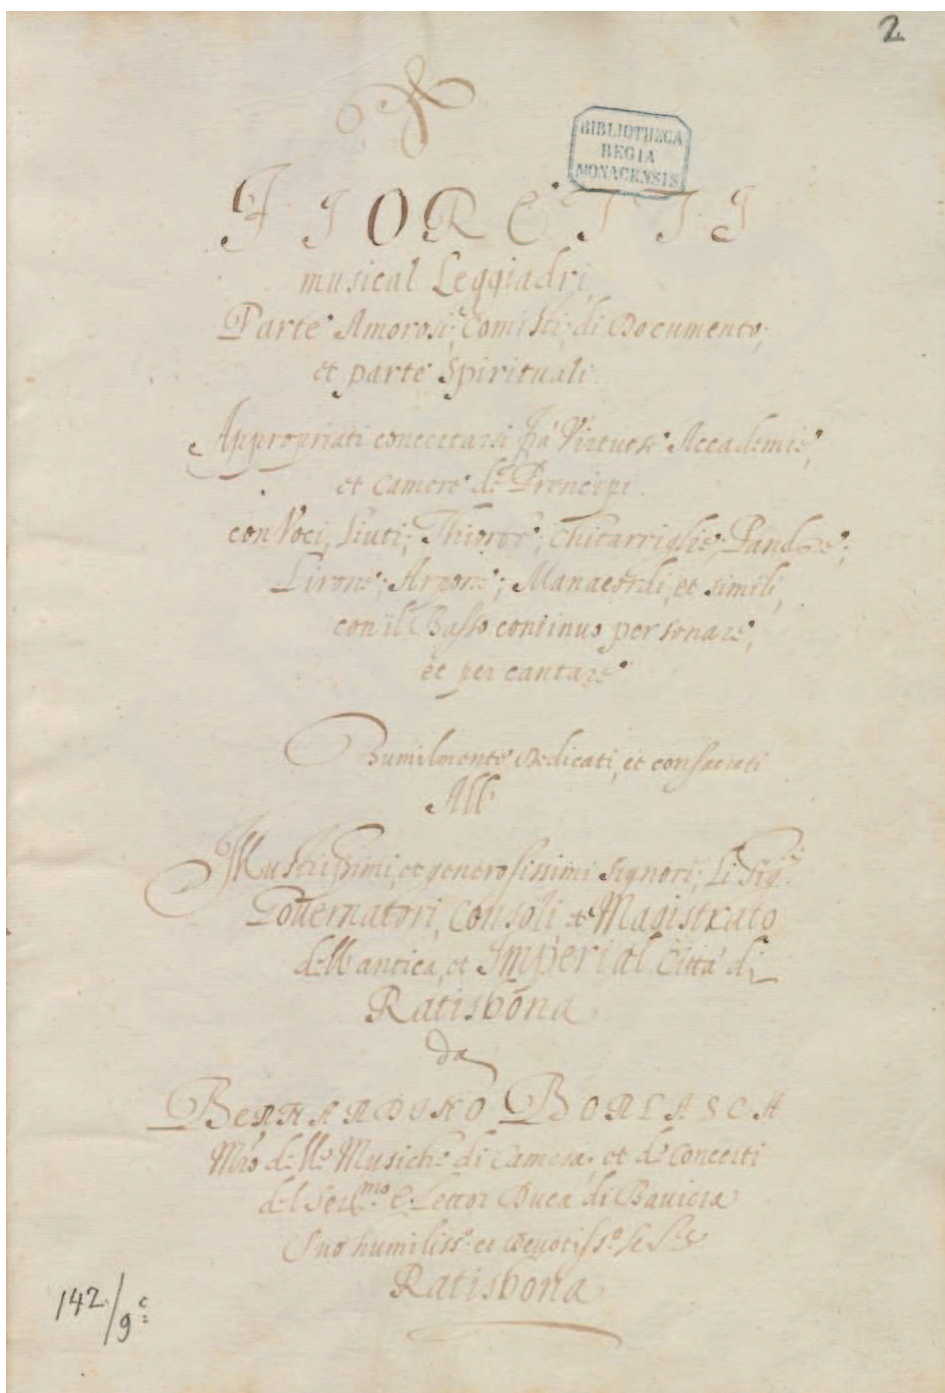 2
BIBLIOTHECA
REGIA
MONACENSIS
FIORETTI
musical Leggiadri,
Parte Amorosi; Comisti; di Documento;
et parte Spirituali.
Appropriati concertarsi frà Virtuose Accademie,
et Camere de Prencipi.
con Voci, Liuti; Thiorbe; Chitarriglie; Pandore;
Lirone; Arpone; Manacordi, et simili,
con il Basso continuo per sonare,
et per cantare
Humilmente Dedicati, et consacrati
Alli
Illustrissimi, et generosissimi Signori; Li Sig.ri
Governatori, Consoli et Magistrato
dell'antica, et Imperial Città di
Ratisbona
da
BERNARDINO BORLASCA
Mro delle Musiche di Camera, et de Concerti
del Ser.mo Elettor Duca di Baviera
Suo humiliss.o et Devotiss.o
Ratisbona
142/9 c